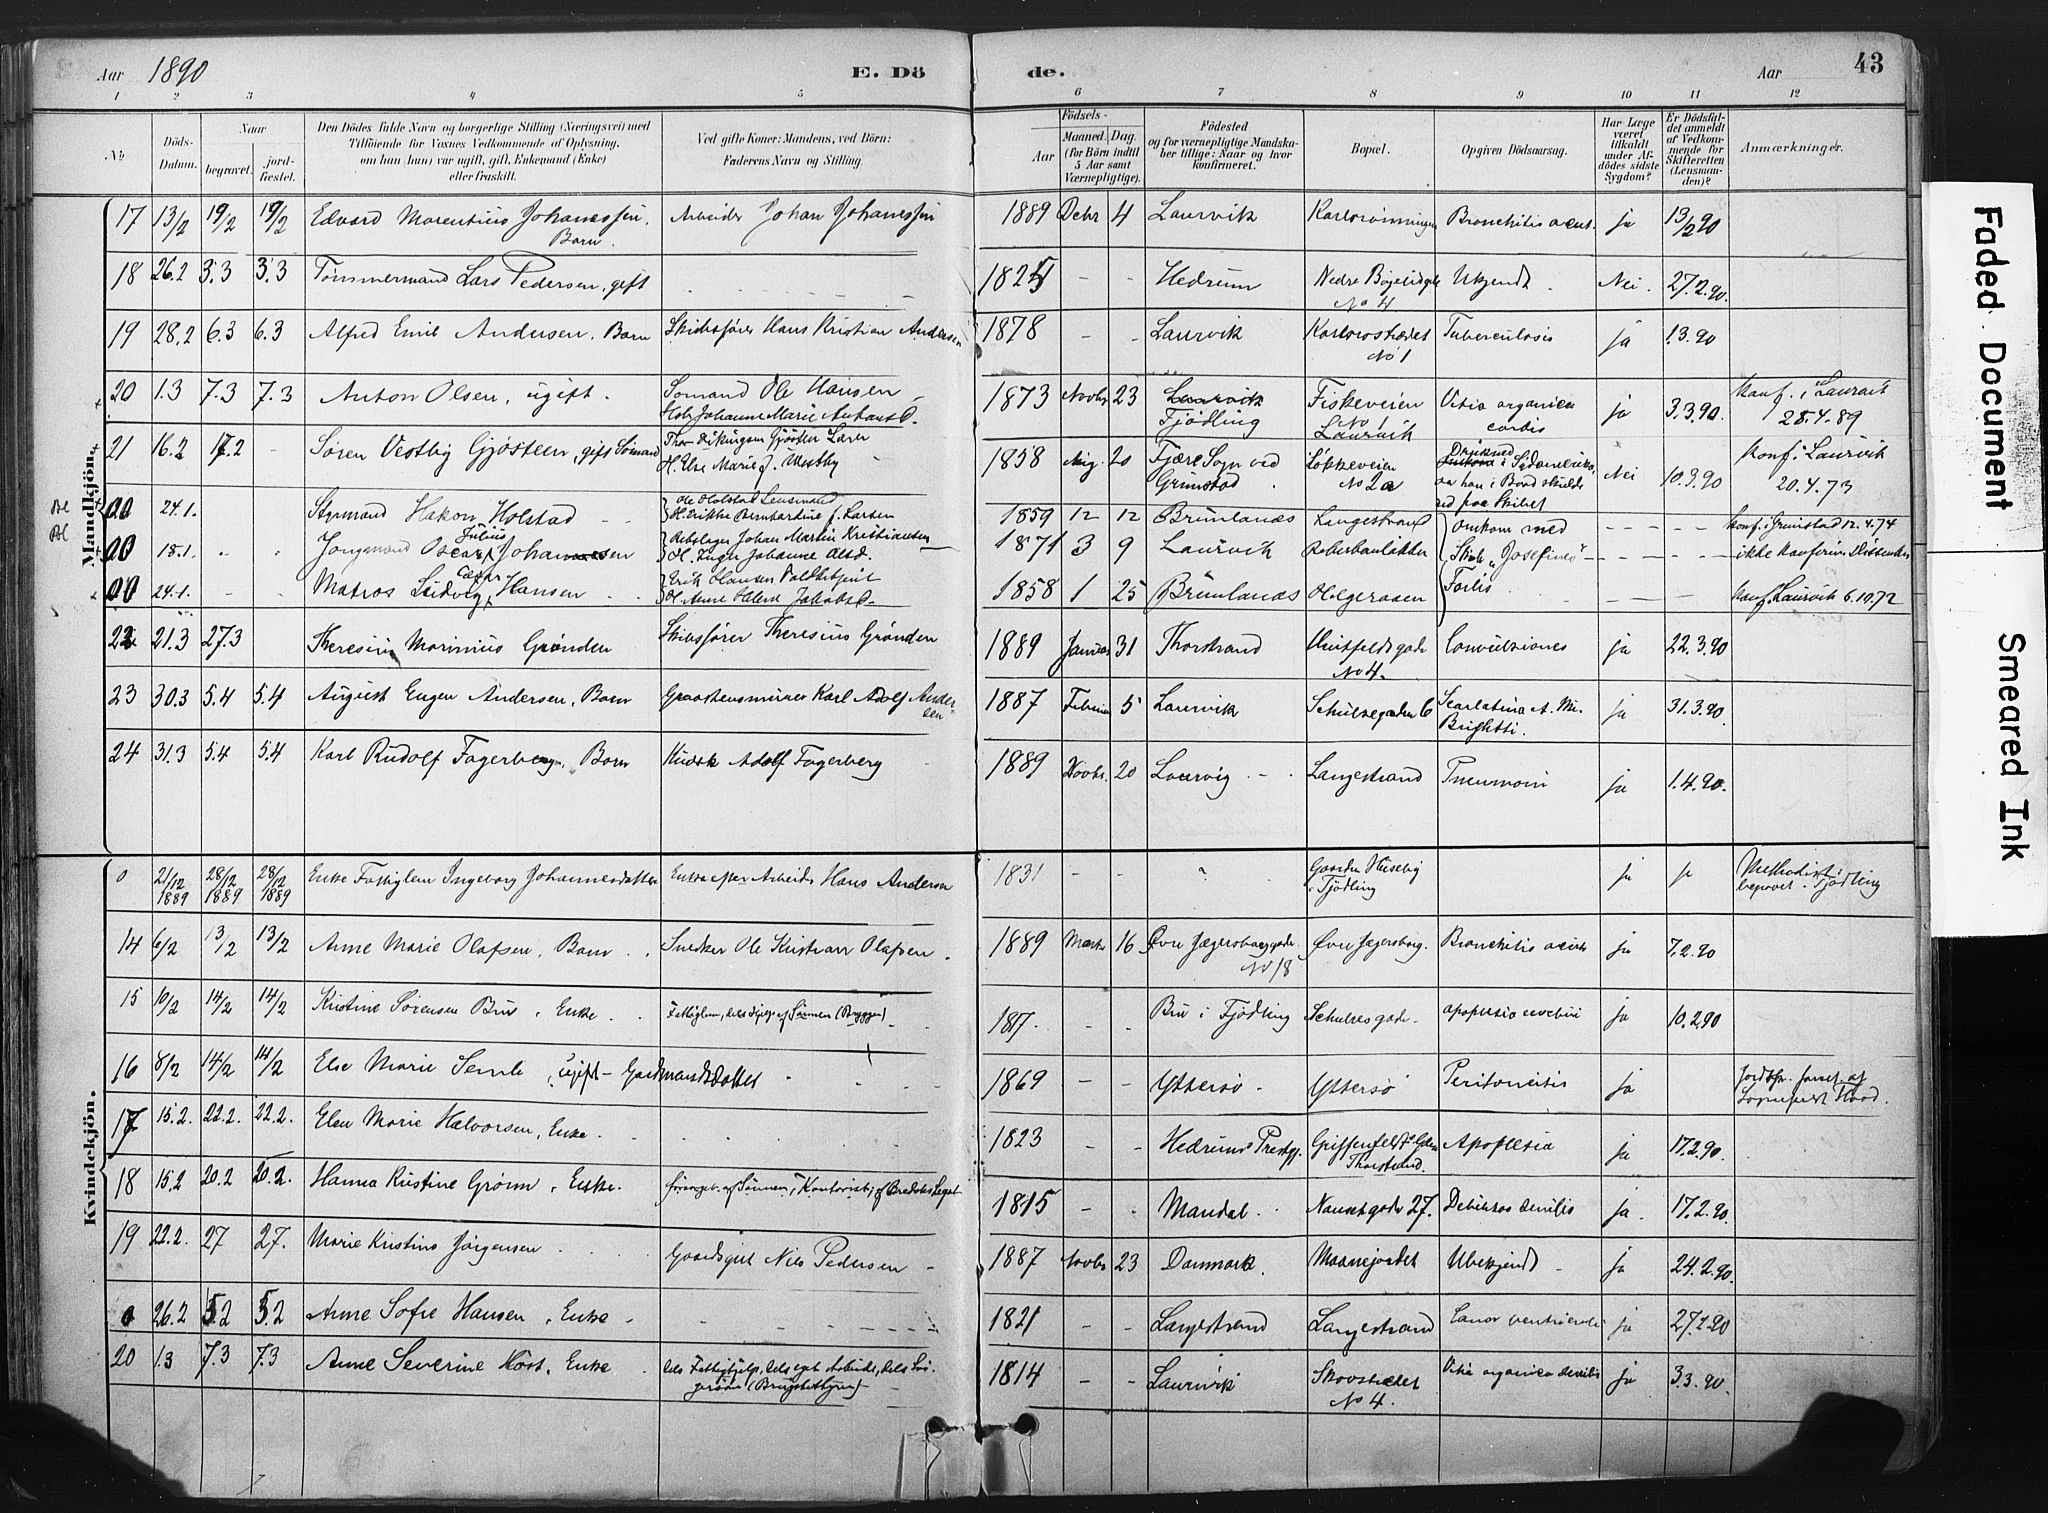 Aar 1890 E. Dö de. Aar 43
1 2 3 4 5 6 7 8 9 10 11 12
№
Döds-Datum.
Naar
begravet.
jord-fæstet.
Den Dödes fulde Navn og borgerlige Stilling (Næringsvei) med
Tilföiende for Voxnes Vedkommende af Oplysning,
om han (hun) var ugift, gift, Enkemand (Enke)
eller fraskilt.
Ved gifte Koner: Mandens, ved Börn:
Faderens Navn og Stilling.
Födsels-
Aar
Maaned. Dag.
(for Börn indtil
5 Aar samt
Værnepligtige).
Födested
og for værnepligtige Mandska-
ber tillige: Naar og hvor
konfirmeret.
Bopæl.
Opgiven Dödsaarsag.
Har Læge
været
tilkaldt
under Af-
dödes sidste
Sygdom?
Er Dödsfal-
det anmeldt
af Vedkom-
mende for
Skifteretten
(Lensman-
den)?
Anmærkninger.
Mandkjön.
17 13/2 19/2 19/2 Edvard Marentius Johanessen, Barn. Arbeider Johan Johanessen 1889 Decbr 4 Laurvik Bronchitis acut. ja 13/2 90
18 26.2 3.3 3.3 Tömmermand Lars Pedersen, gift 1825 - - Hedrum No 4 Ukjendt. Nei. 27.2.90.
19 28.2 6.3 6.3 Alfred Emil Andersen, Barn Skibsförer Hans Kristian Andersen 1878 - - Laurvik No 1 Tuberculosis ja 1.3.90
20 1.3 7.3 7.3 Anton Olsen, ugift. Sömand Ole Hansen 1873 Novbr 23 Laurvik Tjödling Fiskeveien No 1 Laurvik Vitia organica cordis ja 3.3.90. Konf. i Laurvik 28.4.89
21 16.2 17.2 - Sören Vestby Gjösteen, gift Sömand 1858 Aug. 20 Fjære Sogn ved Grimstad. Lökkeveien No 2a Nei 10.3.90 Konf. i Laurvik 20.4.73
00 24.1. Styrmand Hakon Holstad Ole Holstad Lensmand 1859 12 12 Brunlanæs Langestrand Omkom med Konf. i Grimstad 12.4.74
00 18.1. Jungmand Oscar Julius Johannesen Johan Martin Kristiansen 1871 3 9 Laurvik Reberbanløkken Skib "Josefine"
00 24.1. Matros Ludvig Hansen 1858 1 25 Brunlanæs Helgeroaen Forlis Konf. Laurvik 6.10.72
22 21.3 27.3 Theresius Marinius Grönden Skibsförer Theresius Grönden 1889 Januar 31 Thorstrand No 4. Convulsiones ja 22.3.90
23 30.3 5.4 5.4 August Eugen Andersen, Barn Graastensminer Karl Adolf Andersen 1887 Februar 5 Laurvik Schultzegaden 6 Scarlatina Brightii. ja 31.3.90.
24 31.3 5.4 5.4 Karl Rudolf Fagerberg, Barn Kusk Adolf Fagerberg 1889 Novbr. 20 Laurvig Langestrand Pneumoni ja 1.4.90.
Kvindekjön.
0 21/12 1889 28/12 1889 28/12 1889 Enke Fattiglem Ingeborg Johannesdatter Enke efter Arbeider Hans Andersen 1831 - - Gaarden Huseby i Tjödling ja ja Methodist begravet i Tjödling
14 6/2 13/2 13/2 Anne Marie Olafsen, Barn Snedker Ole Kristian Olafsen 1889 Marts 16 Övre Jægersborggade No 18 Övre Jægersborg. Bronchitis acuta ja 7.2.90
15 10/2 14/2 14/2 Kristine Sörensen Bru, Enke 1817. - - Bru i Tjödling Schultzesgade. apoplexia cerebri ja 10.2.90
16 8/2 14/2 14/2 Else Marie Semb, ugift - Gaardmandsdatter 1869 - - Yttersö Yttersö Peritonitis ja
17 15.2. 22.2. 22.2. Elen Marie Halvorsen, Enke. 1823 - - Hedrums Prestgj. Thorstrand. Apoplexia ja 17.2.90.
18 15.2 20.2 20.2. Hanna Kristine Grönn, Enke. 1815 - - Mandal. Nansetgade 27. Debilitas senilis ja. 17.2.90.
19 22.2. 27 27. Marie Kristine Jörgensen Gaardsgut Nils Pedersen 1887 Novbr 23 Danmark. Maanejordet Ubekjendt ja 24.2.90.
0 26.2 5.2 5.2 Anne Sofie Hansen, Enke 1821 - - Langestrand Langestrand ja 27.2.90
20 1.3 7.3 7.3 Anne Severine Höst, Enke 1814 - - Laurvik No 4. Vitia organica senilis ja 3.3.90.
Faded Document
Smeared Ink